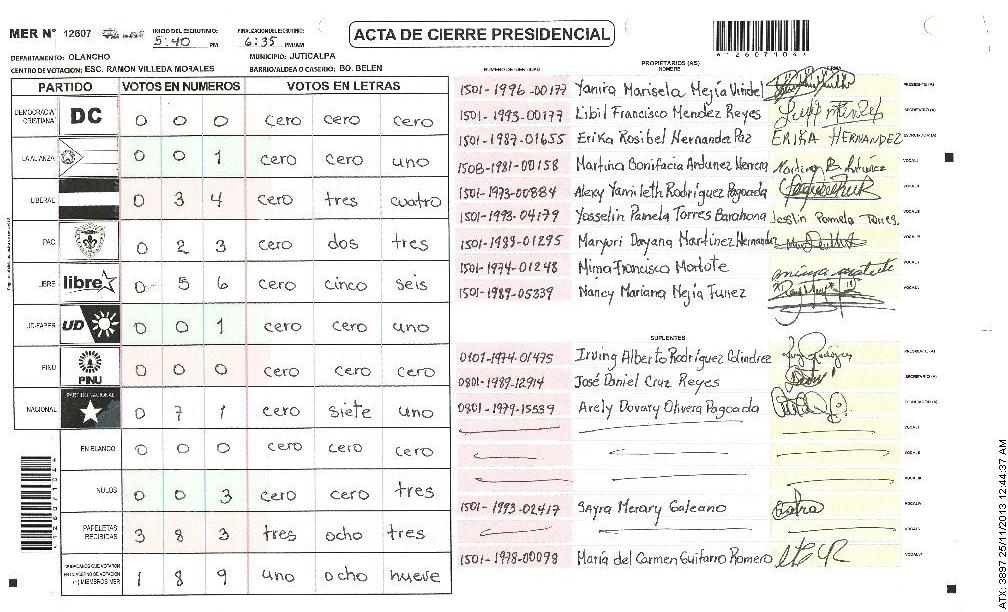 MER Nº 12607 INICIO DEL ESCRUTINIO: 5:40 PM FINALIZACION DEL ESCRUTINIO: 6:35 PM/AM
ACTA DE CIERRE PRESIDENCIAL
DEPARTAMENTO: OLANCHO MUNICIPIO: JUTICALPA
CENTRO DE VOTACION: ESC. RAMON VILLEDA MORALES BARRIO/ALDEA O CASERIO: BO. BELEN
PARTIDO VOTOS EN NUMEROS VOTOS EN LETRAS
DEMOCRACIA CRISTIANA DC 0 0 0 cero cero cero
LA ALIANZA 0 0 1 cero cero uno
LIBERAL 0 3 4 cero tres cuatro
PAC 0 2 3 cero dos tres
LIBRE libre 0 5 6 cero cinco seis
UD-FAPER UD 0 0 1 cero cero uno
PINU PINU 0 0 0 cero cero cero
NACIONAL PARTIDO NACIONAL 0 7 1 cero siete uno
EN BLANCO 0 0 0 cero cero cero
NULOS 0 0 3 cero cero tres
PAPELETAS RECIBIDAS 3 8 3 tres ocho tres
CIUDADANOS QUE VOTARON
(+) MIEMBROS MER 1 8 9 uno ocho nueve
PROPIETARIOS (AS)
NUMERO DE IDENTIDAD NOMBRE FIRMA
1501-1996-00177 Yanira Marisela Mejía PRESIDENTE (A)
1501-1993-00177 Libil Francisco Mendez Reyes SECRETARIO (A)
1501-1987-01655 Erika Rosibel Hernandez Paz ERIKA HERNANDEZ ESCRUTADOR (A)
1508-1981-00158 Martina Bonifacia Ardunez Herrera VOCAL I
1501-1973-00884 Alexy Yamileth Rodríguez Pagoada VOCAL II
1501-1993-04179 Yosselin Pamela Torres Barahona Josslin Pamela Torres. VOCAL III
1501-1983-01295 Maryuri Dayana Martínez Hernandez VOCAL IV
1501-1974-01248 Mirna Francisca Morlote VOCAL V
1501-1989-05339 Nancy Mariana Mejia Funez VOCAL VI
SUPLENTES
0101-1974-01475 Irving Alberto Rodríguez Colindrez PRESIDENTE (A)
0801-1989-12914 José Daniel Cruz Reyes SECRETARIO (A)
0801-1979-15539 Arely Dovary Olivera Pagoada ESCRUTADOR (A)
VOCAL I
VOCAL II
VOCAL III
1501-1993-02417 Sayra Merary Galeano VOCAL IV
VOCAL V
1501-1978-00098 María del Carmen Guifarro Romero VOCAL VI
ATX: 3897 25/11/2013 12:44:37 AM